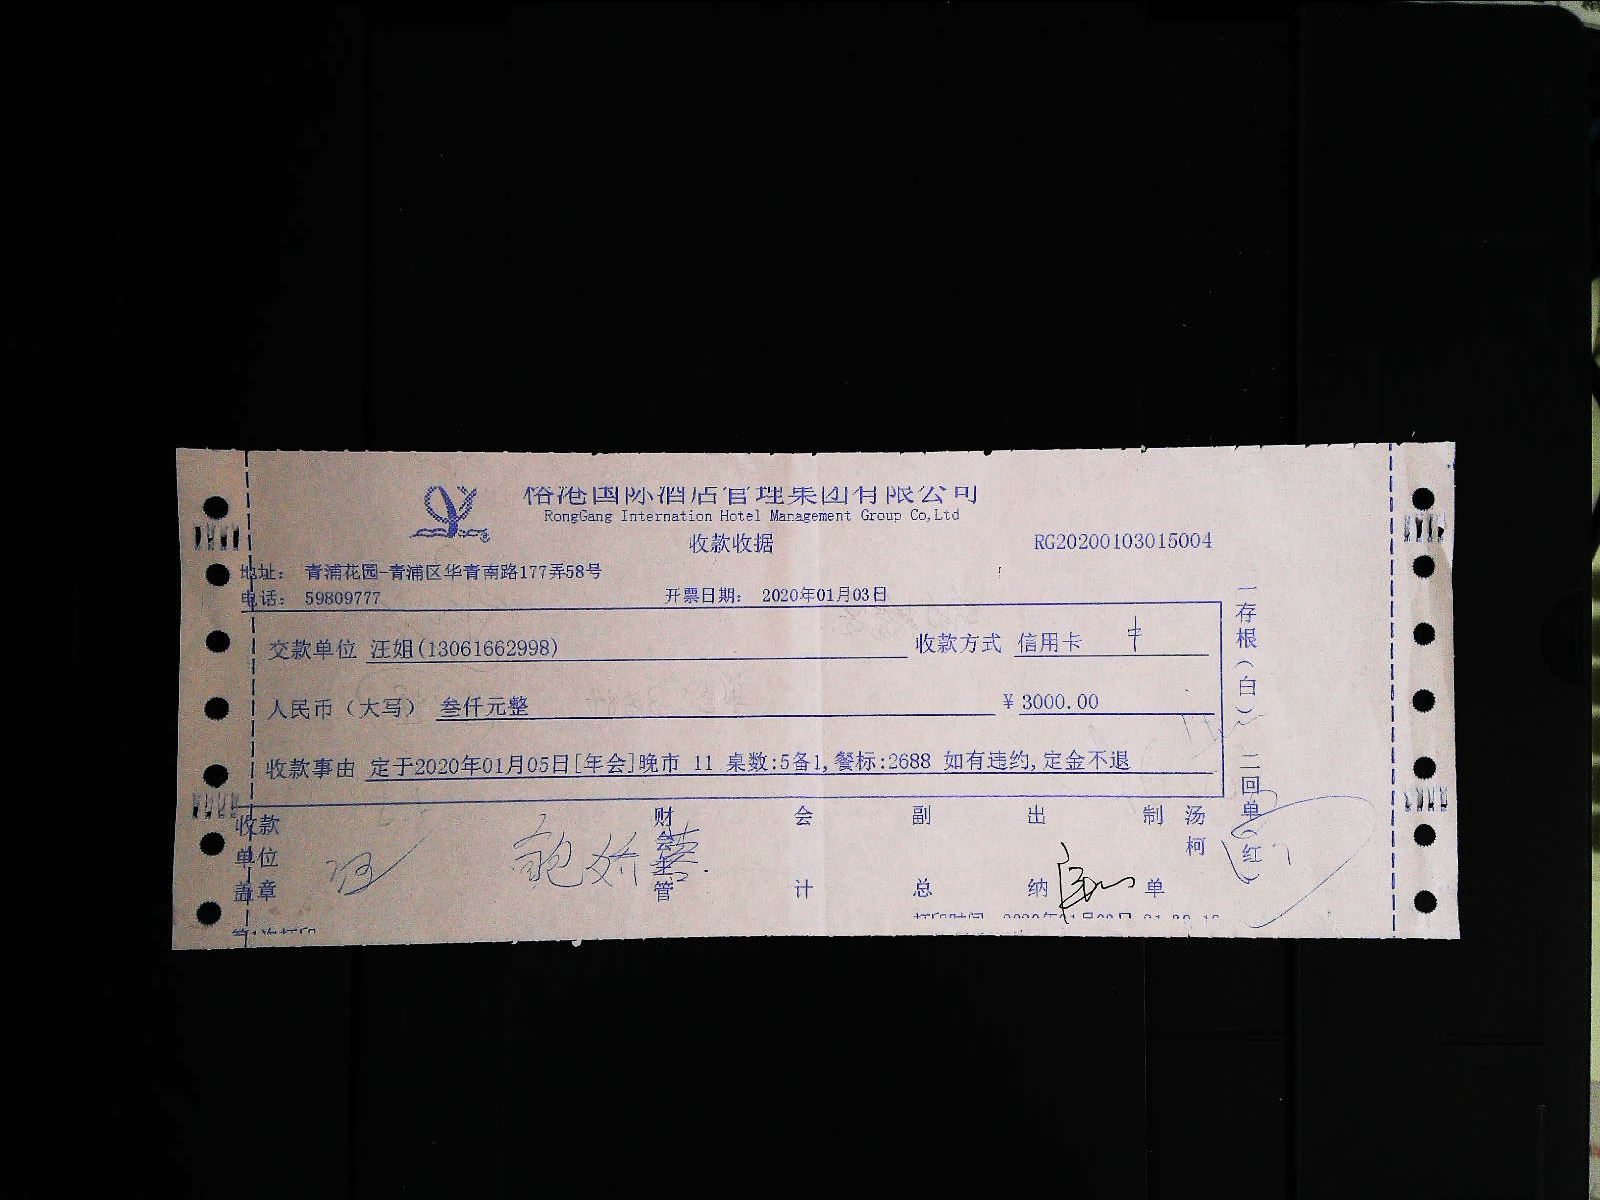 榕港国际酒店管理集团有限公司
RongGang Internation Hotel Management Group Co,Ltd
收款收据 RG20200103015004
地址： 青浦花园-青浦区华青南路177弄58号
电话： 59809777 开票日期： 2020年01月03日
交款单位 汪姐(13061662998) 收款方式 信用卡
人民币（大写） 叁仟元整 ￥3000.00
收款事由 定于2020年01月05日[年会]晚市 11 桌数:5备1,餐标:2688 如有违约,定金不退
一存根（白） 二回单（红）
收款单位盖章 财会主管 会计 副总 出纳 制单 汤柯
鲍娇蓉